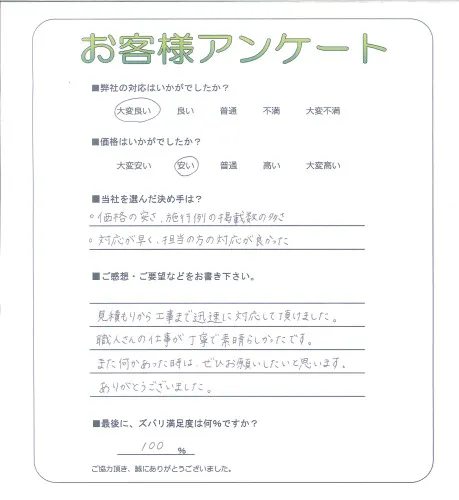 お客様アンケート
■弊社の対応はいかがでしたか？
大変良い 良い 普通 不満 大変不満
■価格はいかがでしたか？
大変安い 安い 普通 高い 大変高い
■当社を選んだ決め手は？
○価格の安さ、施行例の掲載数の多さ
○対応が早く、担当の方の対応が良かった
■ご感想・ご要望などをお書き下さい。
見積もりから工事まで迅速に対応して頂けました。
職人さんの仕事が丁寧で素晴らしかったです。
また何かあった時は、ぜひお願いしたいと思います。
ありがとうございました。
■最後に、ズバリ満足度は何％ですか？
100 ％
ご協力頂き、誠にありがとうございました。